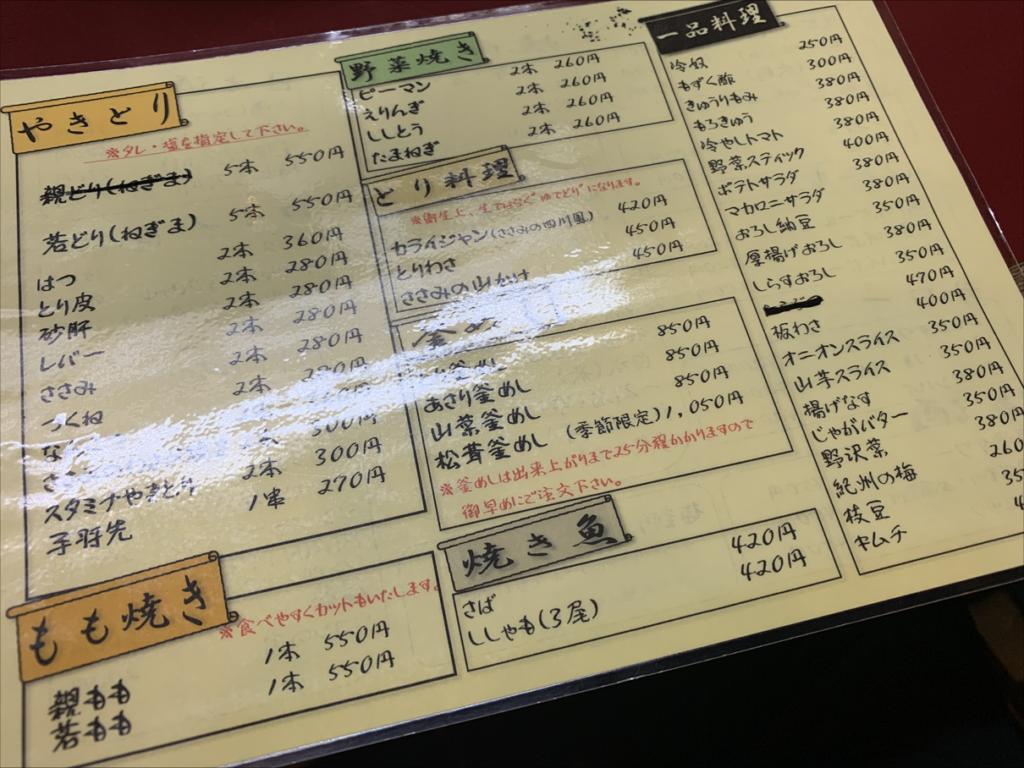 やきとり
※タレ・塩を指定して下さい。
親どり(ねぎま) 5本 550円
若どり(ねぎま) 5本 550円
はつ 2本 360円
とり皮 2本 280円
砂肝 2本 280円
レバー 2本 280円
ささみ 2本 280円
つくね 2本
300円
スタミナやきとり 2本 300円
手羽先 1串 270円
もも焼き
※食べやすくカットもいたします。
親もも 1本 550円
若もも 1本 550円
野菜焼き
ピーマン 2本 260円
えりんぎ 2本 260円
ししとう 2本 260円
たまねぎ 2本 260円
とり料理
※衛生上、生ではなく"ゆでどり"になります。
カライジャン(ささみの四川風) 420円
とりわさ 450円
ささみの山かけ 450円
釜めし 850円
あさり釜めし 850円
山菜釜めし 850円
松茸釜めし (季節限定) 1,050円
※釜めしは出来上がりまで25分程かかりますので
御早めにご注文下さい。
焼き魚
さば 420円
ししゃも(3尾) 420円
一品料理
冷奴 250円
もずく酢 300円
きゅうりもみ 380円
もろきゅう 380円
冷やしトマト 380円
野菜スティック 400円
ポテトサラダ 380円
マカロニサラダ 380円
おろし納豆 350円
厚揚げおろし 380円
しらすおろし 350円
470円
板わさ 400円
オニオンスライス 350円
山芋スライス 350円
揚げなす 380円
じゃがバター 350円
野沢菜 380円
紀州の梅 260
枝豆 35
キムチ